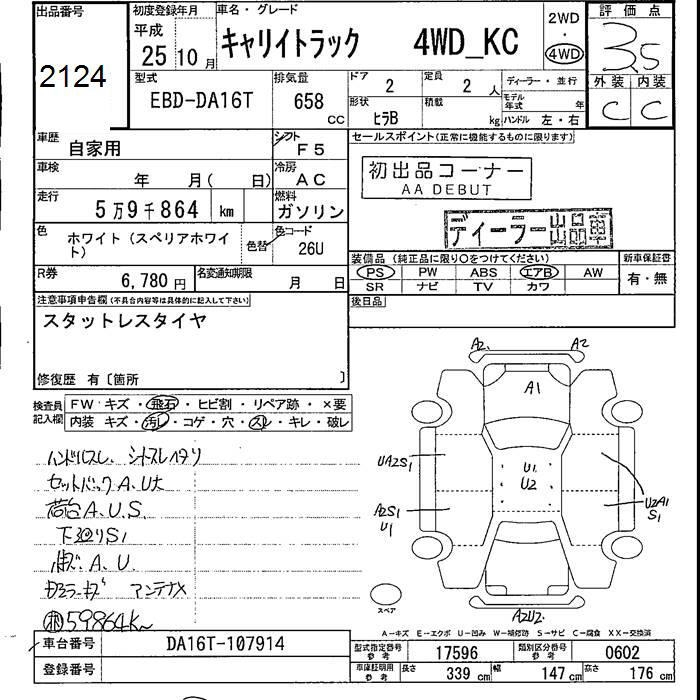 出品番号
2124
初度登録年月
平成
25 10月
車名・グレード
キャリイトラック 4WD_KC
2WD
・
4WD
評価点
3.5
外装 内装
C C
型式
EBD-DA16T
排気量
658
CC
ドア
2
定員
2 人
形状
ヒラB
積載
kg
ディーラー・並行
モデル年式 年
ハンドル 左・右
車歴
自家用
シフト
F5
車検
年 月( 日)
冷房
AC
走行
5万9千864 km
燃料
ガソリン
色
ホワイト (スペリアホワイ
ト)
色替
色コード
26U
R券
6,780円
名変通知期限
月 日
セールスポイント(正常に機能するものに限ります)
初出品コーナー
AA DEBUT
ディーラー出品車
装備品(純正品に限り○をつけてください)
PS PW ABS エアB AW
SR ナビ TV カワ
新車保証書
有・無
後日品
注意事項申告欄(不具合内容等は具体的に記入して下さい)
スタットレスタイヤ
修復歴 有〔箇所 〕
検査員
記入欄
FW キズ・飛石・ヒビ割・リペア跡・×要
内装 キズ・汚レ・コゲ・穴・スレ・キレ・破レ
ハンドルスレ シートスレヘタリ
セットバックA.U大
荷台A.U.S
下廻りS1
A.U
アンテナX
59864K
A2 A2
A1
UA2S1
U1
U2
A2S1
U1
U2A1
S1
A2U2
スペア
A-キズ E-エクボ U-凹み W-補修跡 S-サビ C-腐食 XX-交換済
車台番号
DA16T-107914
登録番号
型式指定番号
参考
17596
類別区分番号
参考
0602
車庫証明用
参考
長さ
339 cm
幅
147 cm
高さ
176 cm